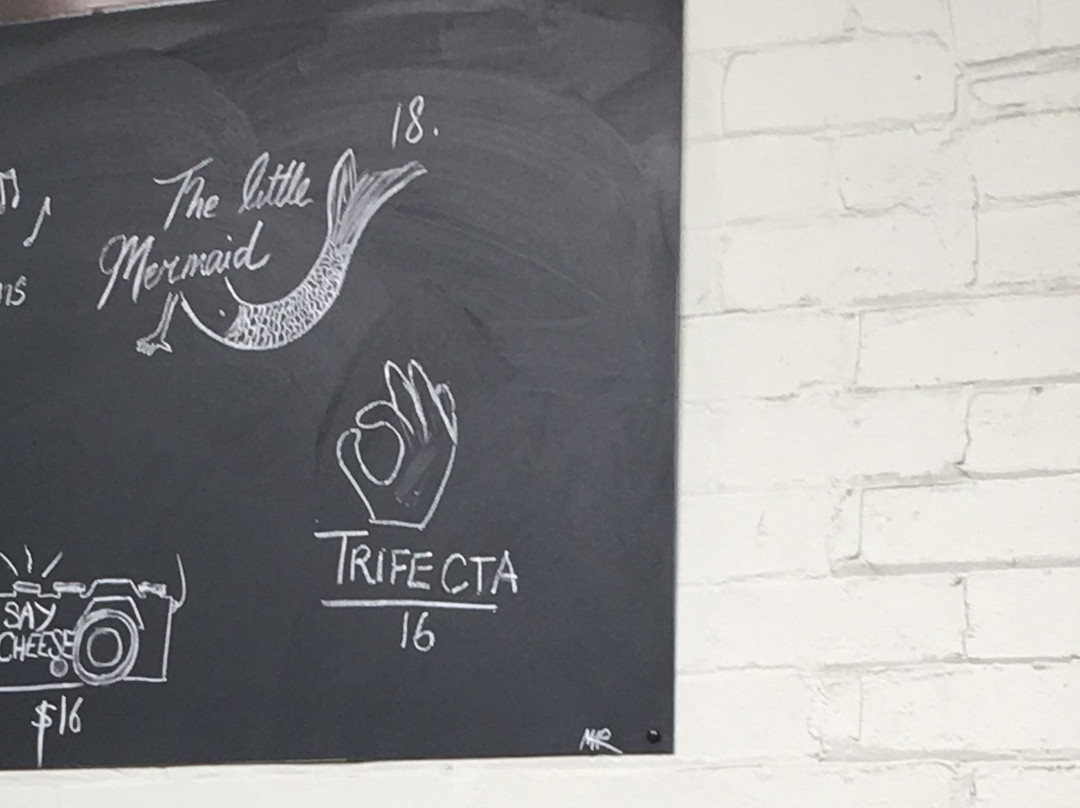 18.
The little
Mermaid
TRIFECTA
16
SAY
CHEESE
$16
MR